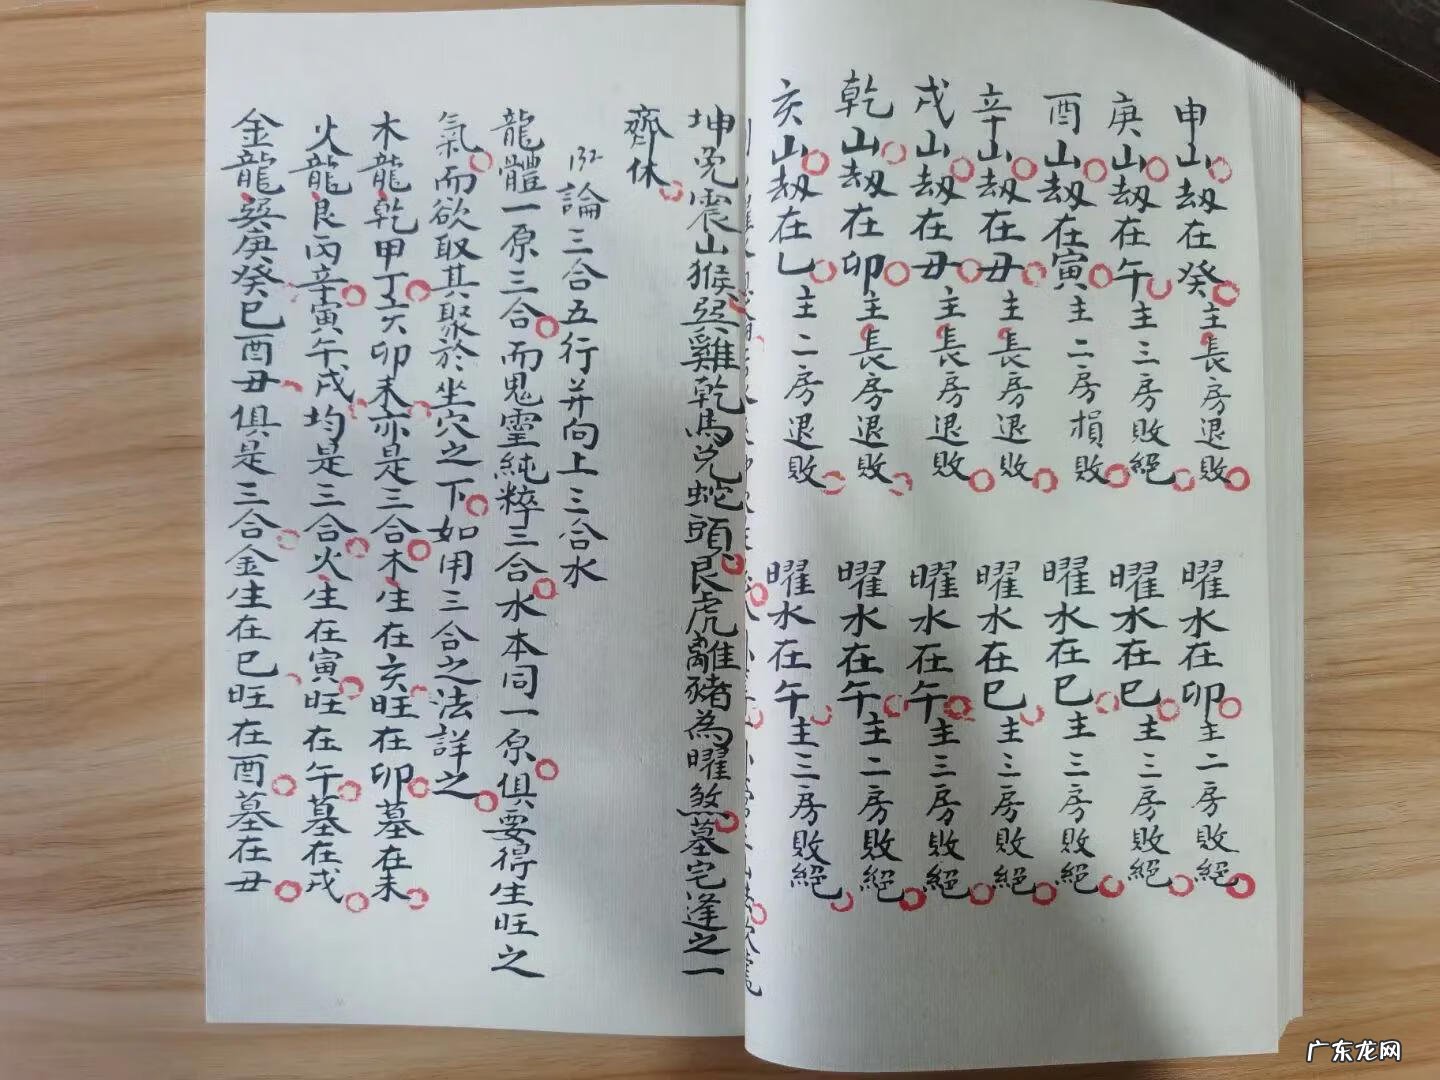 申山刼在癸主長房退敗 曜水在卯主二房敗絕
庚山刼在午主三房敗絕 曜水在巳主三房敗絕
酉山刼在寅主二房損敗 曜水在巳主三房敗絕
辛山刼在丑主長房退敗 曜水在巳主三房敗絕
戌山刼在丑主長房退敗 曜水在午主三房敗絕
乾山刼在卯主長房退敗 曜水在午主二房敗絕
亥山刼在乙主二房退敗 曜水在午主三房敗絕
坤兔震山猴巽雞乾馬兌蛇頭艮虎離豬為曜煞墓宅逢之一
齊休
132論三合五行并向上三合水
龍體一原三合而鬼靈純粹三合水本同一原俱要得生旺之
氣而欲取其聚於坐穴之下如用三合之法詳之
木龍乾甲丁亥卯未亦是三合木生在亥旺在卯墓在未
火龍艮丙辛寅午戌均是三合火生在寅旺在午墓在戌
金龍巽庚癸巳酉丑俱是三合金生在巳旺在酉墓在丑
广东龙网